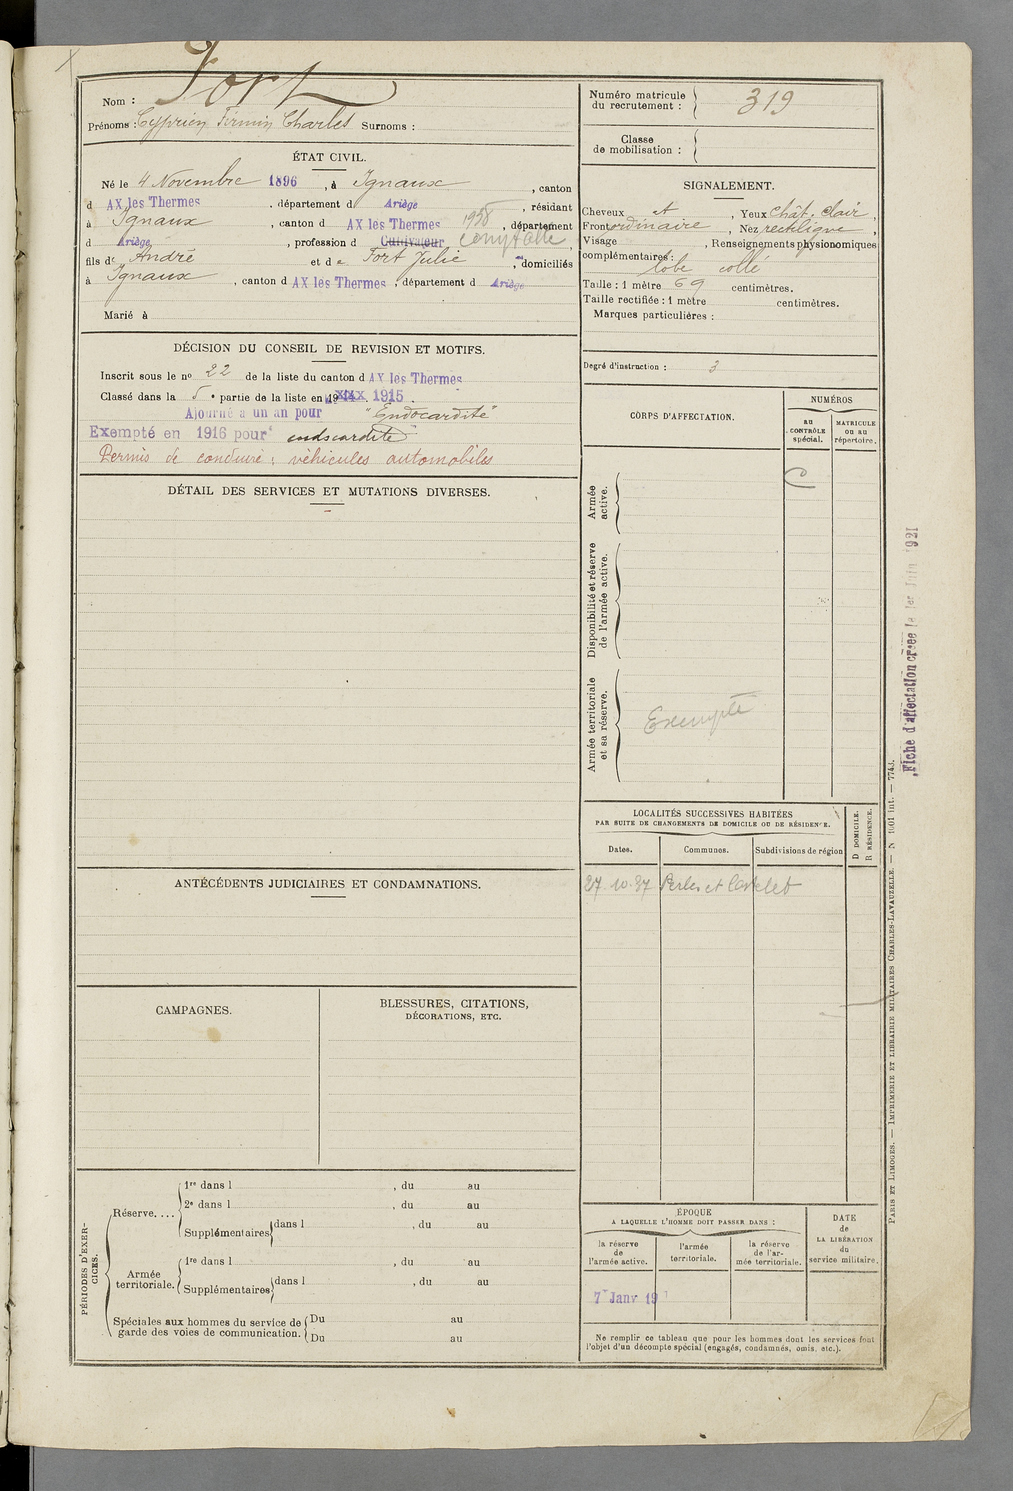 Nom : Fort
Prénoms : Cyprien Firmin Charles Surnoms :
ÉTAT CIVIL.
Né le 4 Novembre 1896, à Ignaux, canton
d AX les Thermes, département d Ariège, résidant
à Ignaux, canton d AX les Thermes 1938, département
d Ariège, profession d Cultivateur comptable,
fils de André et de Fort Julie, domiciliés
à Ignaux, canton d AX les Thermes, département d Ariège
Marié à
DÉCISION DU CONSEIL DE REVISION ET MOTIFS.
Inscrit sous le no 22 de la liste du canton d AX les Thermes
Classé dans la 5e partie de la liste en 1915.
Ajourné a un an pour "Endocardite"
Exempté en 1916 pour endocardite
Permis de conduire : véhicules automobiles
DÉTAIL DES SERVICES ET MUTATIONS DIVERSES.
ANTÉCÉDENTS JUDICIAIRES ET CONDAMNATIONS.
CAMPAGNES.
BLESSURES, CITATIONS,
DÉCORATIONS, ETC.
PÉRIODES D'EXERCICES.
Réserve....
1re dans l , du au
2e dans l , du au
Supplémentaires dans l , du au
Armée territoriale.
1re dans l , du au
Supplémentaires dans l , du au
Spéciales aux hommes du service de
garde des voies de communication.
Du au
Du au
Numéro matricule
du recrutement : 319
Classe
de mobilisation :
SIGNALEMENT.
Cheveux et, Yeux chât. clair,
Front ordinaire, Nez rectiligne,
Visage , Renseignements physionomiques
complémentaires :
lobe collé
Taille : 1 mètre 69 centimètres.
Taille rectifiée : 1 mètre centimètres.
Marques particulières :
Degré d'instruction : 3
CORPS D'AFFECTATION.
NUMÉROS
au
CONTRÔLE
spécial.
MATRICULE
ou au
répertoire.
C
Armée
active.
Disponibilité et réserve
de l'armée active.
Armée territoriale
et sa réserve.
Exempté
LOCALITÉS SUCCESSIVES HABITÉES
PAR SUITE DE CHANGEMENTS DE DOMICILE OU DE RÉSIDENCE.
D DOMICILE.
R RÉSIDENCE.
Dates. Communes. Subdivisions de région
27-10-37 Perles et Castelet
ÉPOQUE
A LAQUELLE L'HOMME DOIT PASSER DANS :
la réserve
de
l'armée active.
l'armée
territoriale.
la réserve
de l'armée territoriale.
DATE
de
LA LIBÉRATION
du
service militaire.
7 Janv 19
Ne remplir ce tableau que pour les hommes dont les services font
l'objet d'un décompte spécial (engagés, condamnés, omis, etc.).
Fiche d'affectation créée le 1er Juin 1921
PARIS ET LIMOGES. — IMPRIMERIE ET LIBRAIRIE MILITAIRES CHARLES-LAVAUZELLE. — N 1001 int. — 774